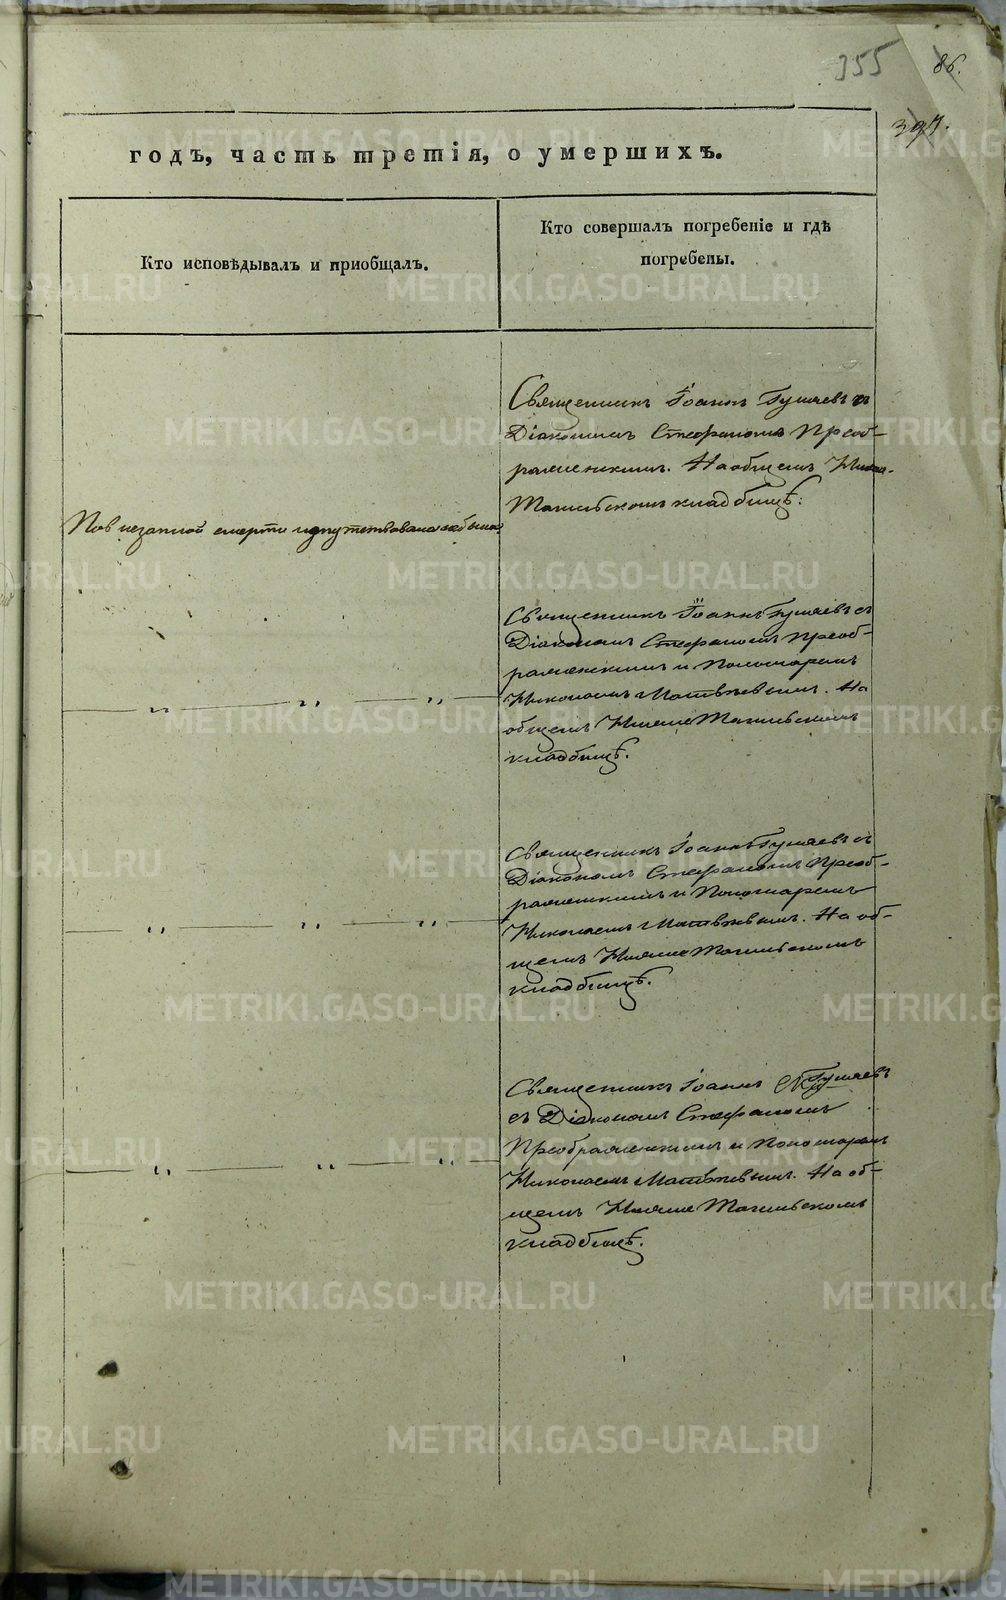 355 86.
397.
годъ, часть третія, о умершихъ.
Кто исповѣдывалъ и пріобщалъ.
Кто совершалъ погребеніе и гдѣ
погребены.
Священникъ Іоаннъ Гуляевъ съ
Діакономъ Стефаномъ Преоб-
раженскимъ. На общемъ Нижне-
Тагильскомъ кладбищѣ.
По внезапной смерти напутствована не была.
Священникъ Іоаннъ Гуляевъ съ
Діакономъ Стефаномъ Преоб-
раженскимъ и Пономаремъ
Николаемъ Матвѣевымъ. На
общемъ Нижне Тагильскомъ
кладбищѣ.
— „ — „ — „ —
Священникъ Іоаннъ Гуляевъ съ
Діакономъ Стефаномъ Преоб-
раженскимъ и Пономаремъ
Николаемъ Матвѣевымъ. На об-
щемъ Нижне Тагильскомъ
кладбищѣ.
— „ — „ — „ —
Священникъ Іоаннъ Гуляевъ
съ Діакономъ Стефаномъ
Преображенскимъ и Пономаремъ
Николаемъ Матвѣевымъ. На об-
щемъ Нижне Тагильскомъ
кладбищѣ.
— „ — „ — „ —
METRIKI.GASO-URAL.RU